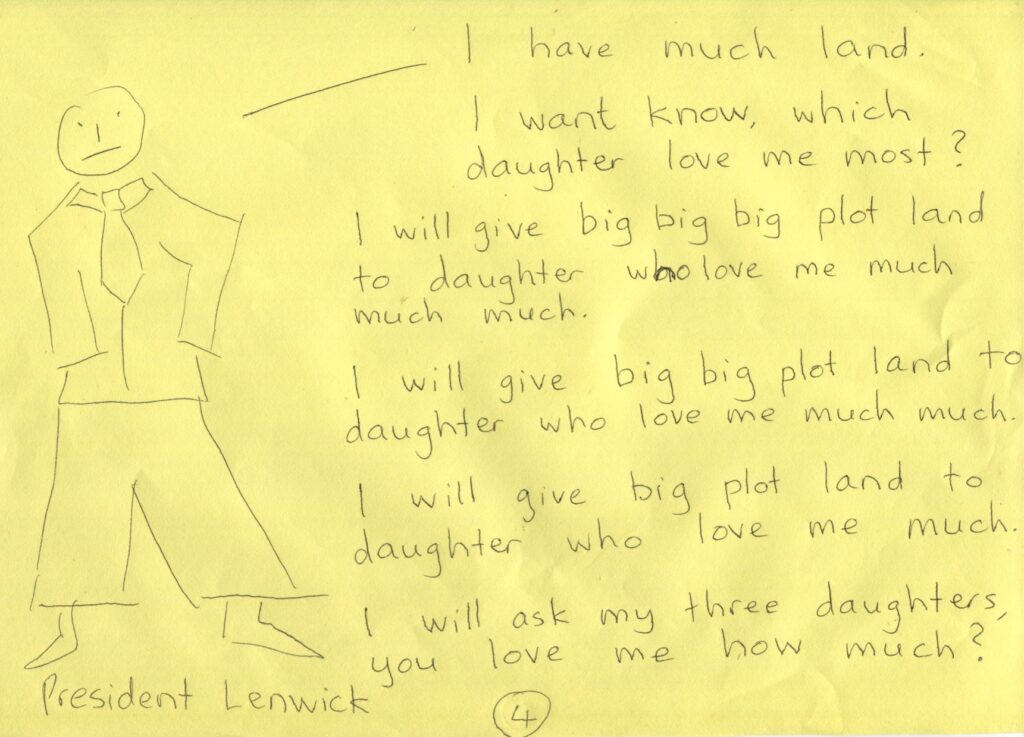 I have much land.
I want know, which
daughter love me most?
I will give big big big plot land
to daughter who love me much
much much.
I will give big big plot land to
daughter who love me much much.
I will give big plot land to
daughter who love me much.
I will ask my three daughters,
you love me how much?
President Lenwick
4